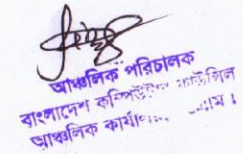 আঞ্চলিক পরিচালক
বাংলাদেশ কম্পিউটার কাউন্সিল
আঞ্চলিক